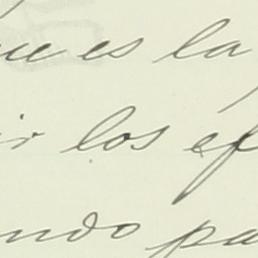 ue es la
ir los ef
ndo pa